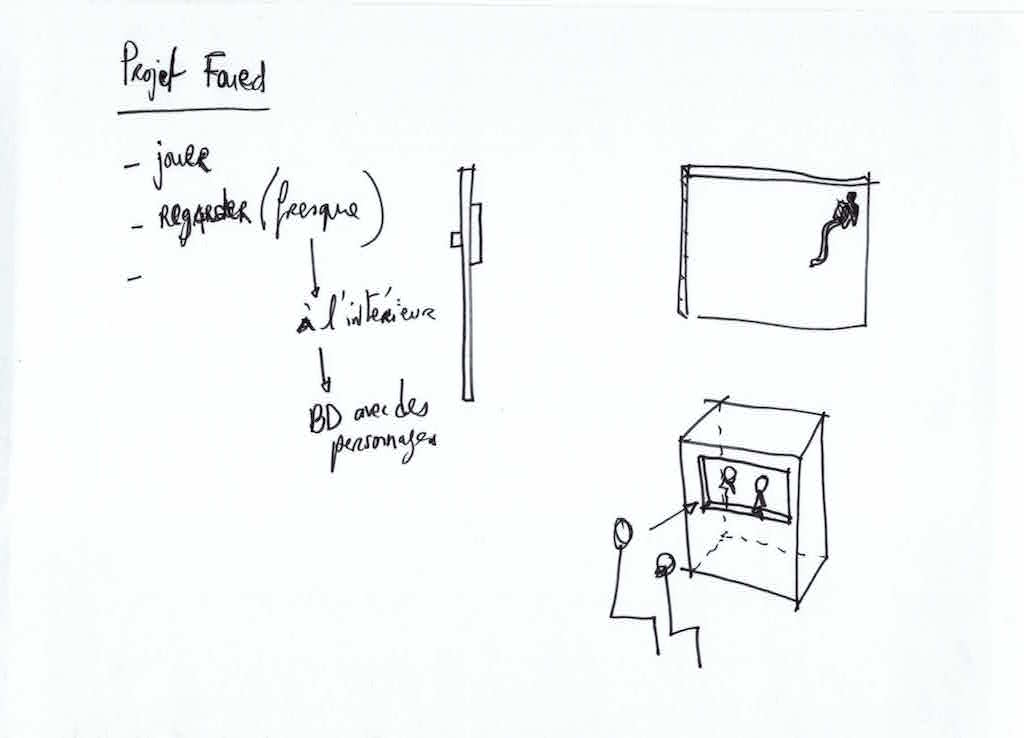 Projet Foued
- jouer
- regarder (fresque)
-
à l'intérieur
BD avec des
personnages